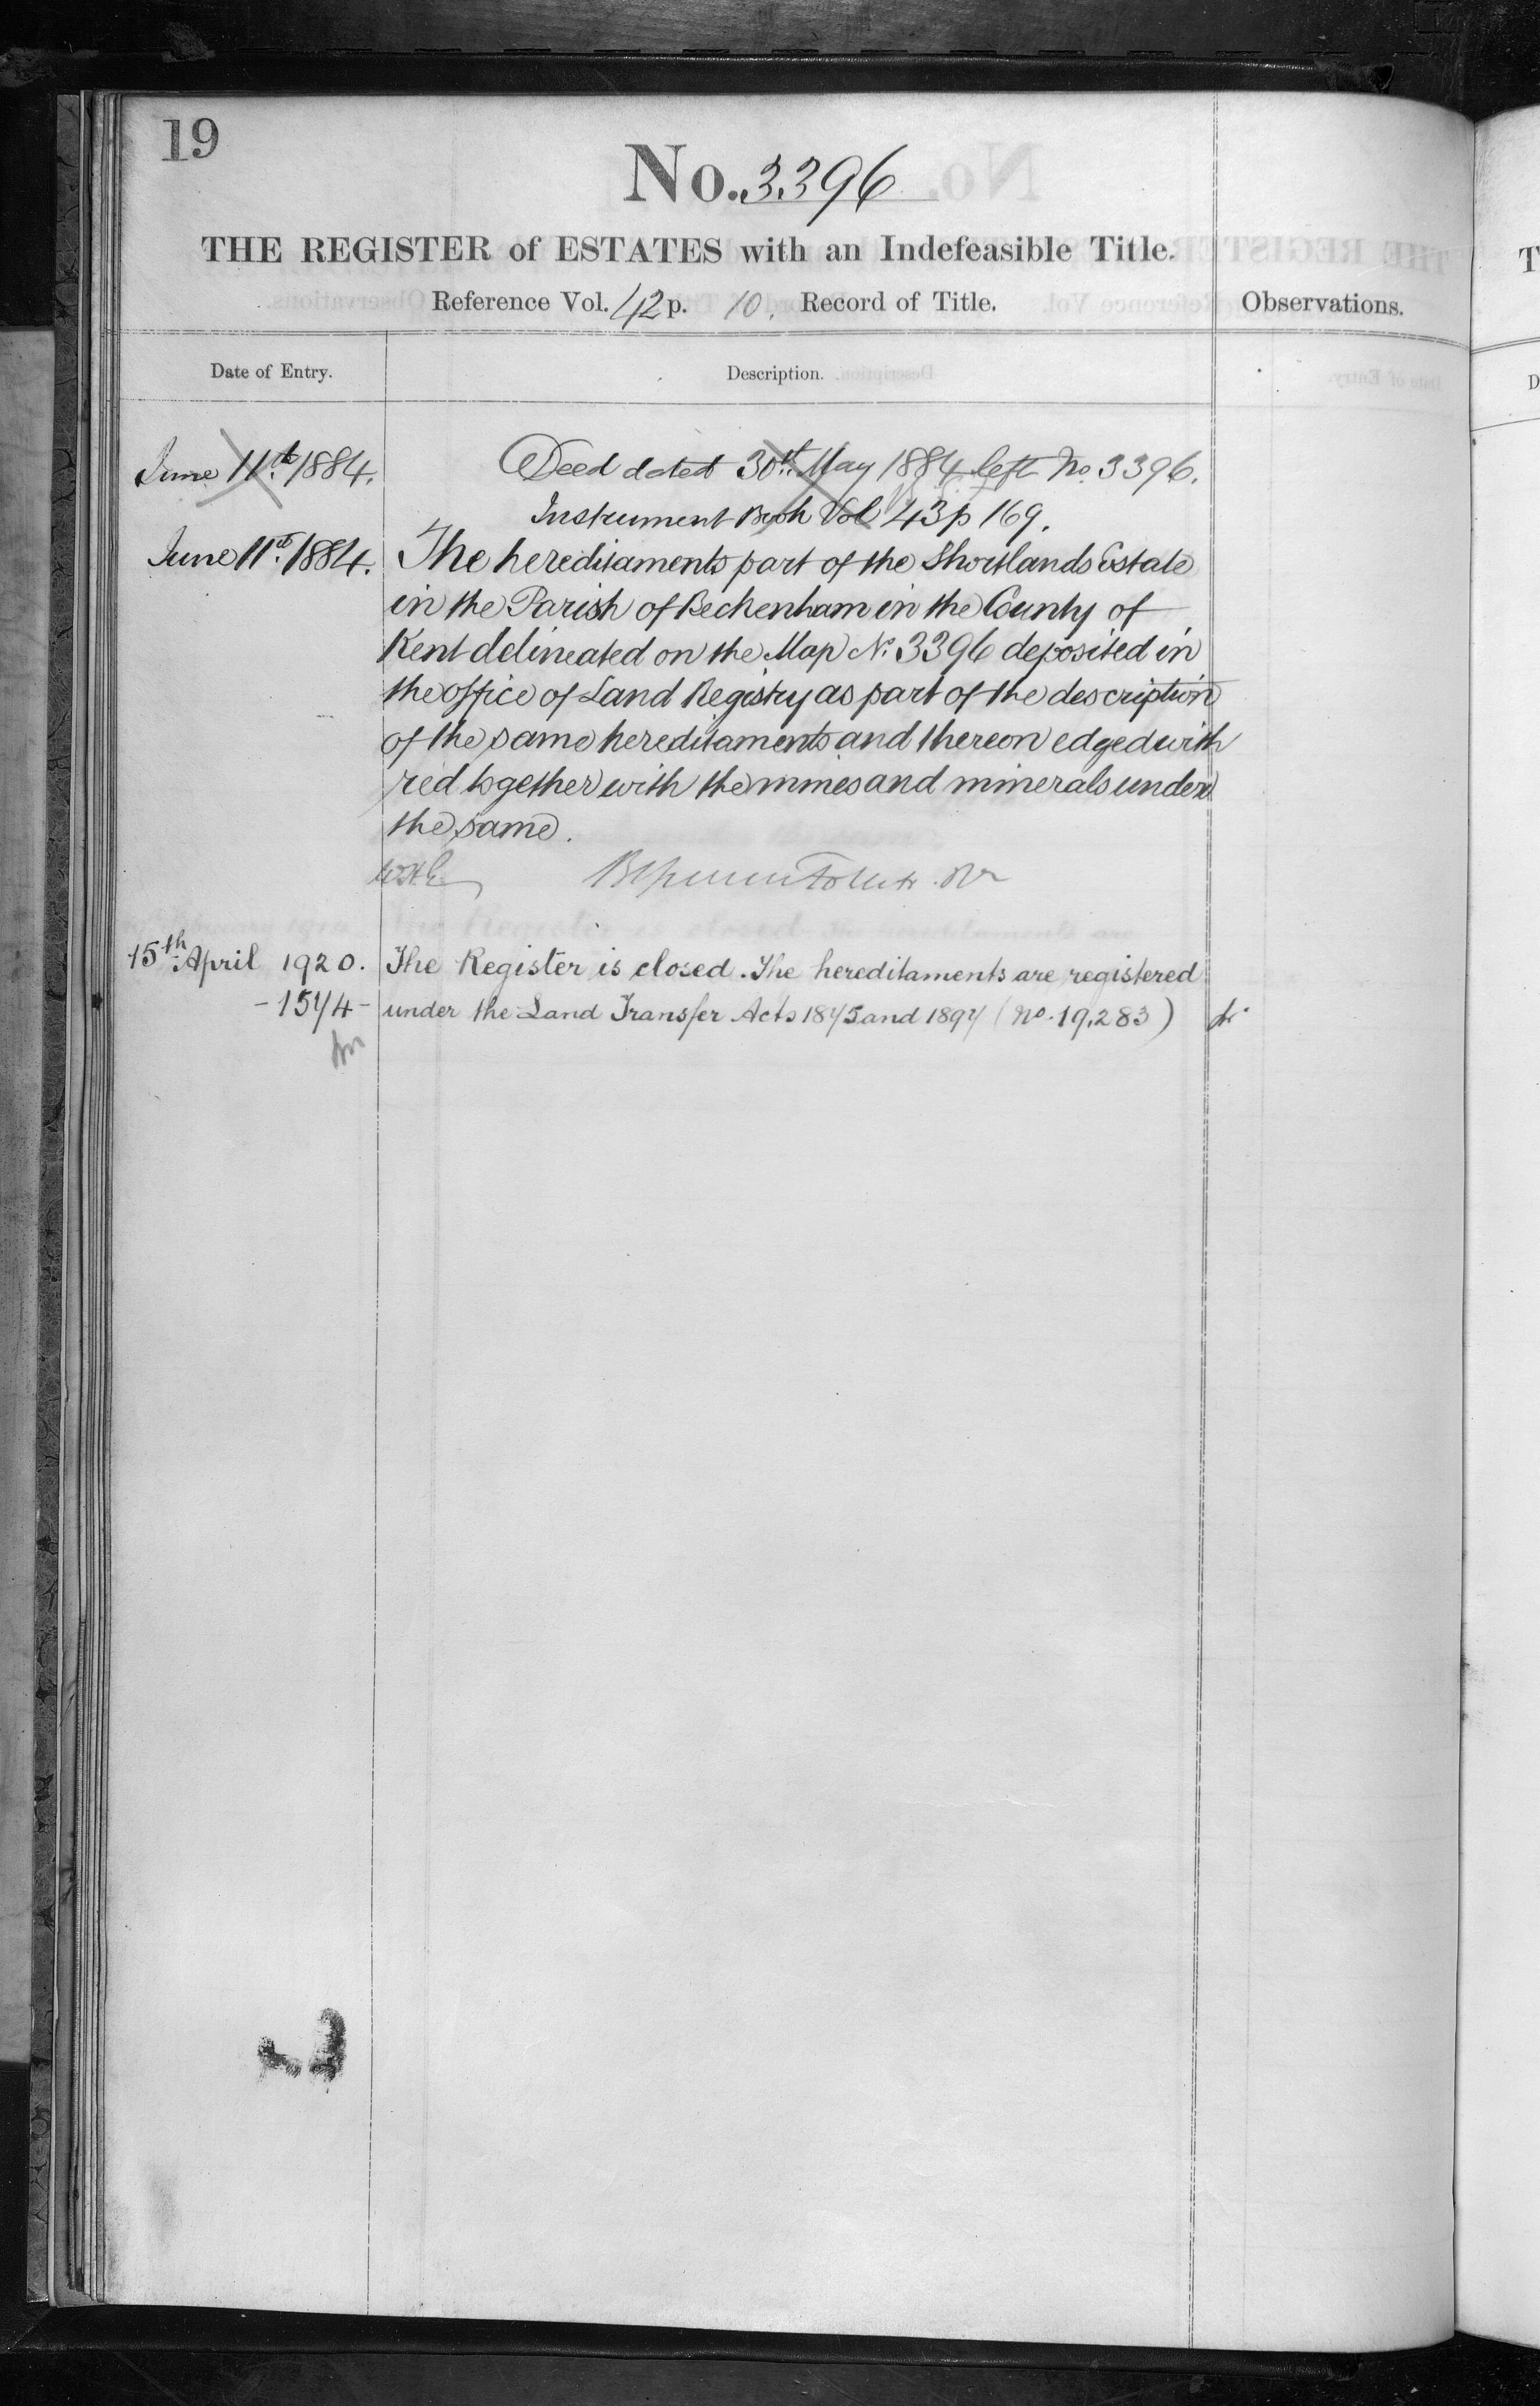 19
No. 3396
THE REGISTER of ESTATES with an Indefeasible Title.
Reference Vol. 42 p. 10. Record of Title.
Observations.
Date of Entry.
Description.
June 11th 1884. Deed dated 30th May 1884 left No. 3396.
Instrument Book Vol 43 p 169.
June 11th 1884. The hereditaments part of the Shortlands Estate
in the Parish of Beckenham in the County of
Kent delineated on the Map No. 3396 deposited in
the office of Land Registry as part of the description
of the same hereditaments and thereon edged with
red together with the mines and minerals under
the same.
15th April 1920. The Register is closed. The hereditaments are registered
- 1574 - under the Land Transfer Acts 1875 and 1897 (No. 19,283)